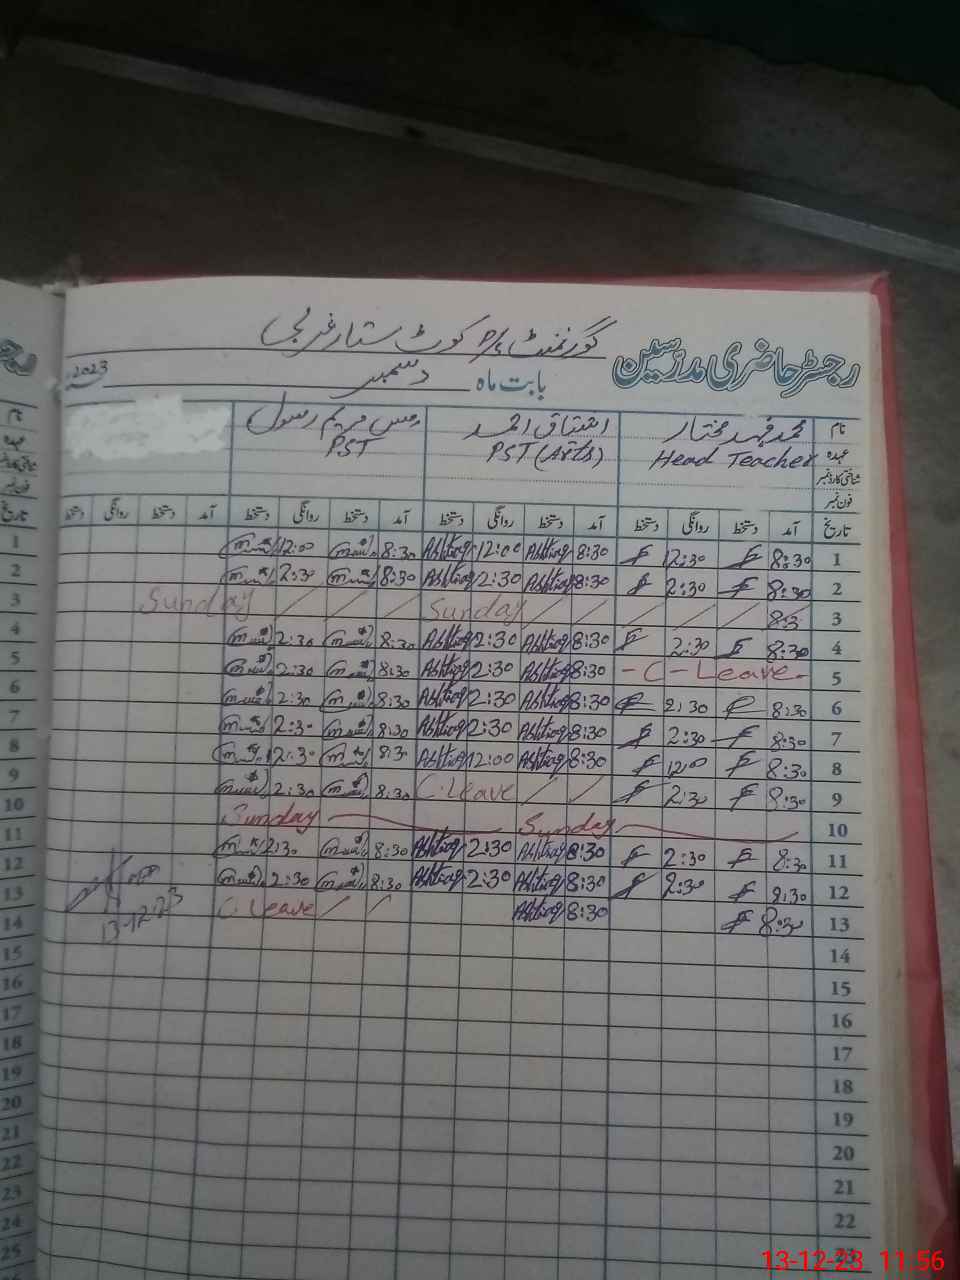 رجسٹر حاضری مدرسین گورنمنٹ P/S کوٹ ستار غربی
بابت ماہ دسمبر 2023
نام محمد فہد مختار اشتیاق احمد مس مریم رسول
عہدہ Head Teacher PST (Arts) PST
شناختی کارڈ نمبر
فون نمبر
تاریخ آمد دستخط روانگی دستخط آمد دستخط روانگی دستخط آمد دستخط روانگی دستخط آمد دستخط روانگی دستخط
1 8:30 12:30 8:30 Ashtiaq 12:00 Ashtiaq 8:30 12:00
2 8:30 2:30 8:30 Ashtiaq 2:30 Ashtiaq 8:30 2:30
3 8:3 Sunday Sunday
4 8:30 2:30 8:30 Ashtiaq 2:30 Ashtiaq 8:30 2:30
5 - C - Leave - 8:30 Ashtiaq 2:30 Ashtiaq 8:30 2:30
6 8:30 2:30 8:30 Ashtiaq 2:30 Ashtiaq 8:30 2:30
7 8:30 2:30 8:30 Ashtiaq 2:30 Ashtiaq 8:30 2:30
8 8:30 12:00 8:30 Ashtiaq 12:00 Ashtiaq 8:30 12:30
9 8:30 2:30 C. Leave 8:30 2:30
10 Sunday Sunday
11 8:30 2:30 8:30 Ashtiaq 2:30 Ashtiaq 8:30 2:30
12 8:30 2:30 8:30 Ashtiaq 2:30 Ashtiaq 8:30 2:30
13 8:30 8:30 Ashtiaq C. Leave
13-12-23
14
15
16
17
18
19
20
21
22
23
نام
عہدہ
شناختی کارڈ نمبر
فون نمبر
تاریخ
1
2
3
4
5
6
7
8
9
10
11
12
13
14
15
16
17
18
19
20
21
22
23
24
25
13-12-23 11:56